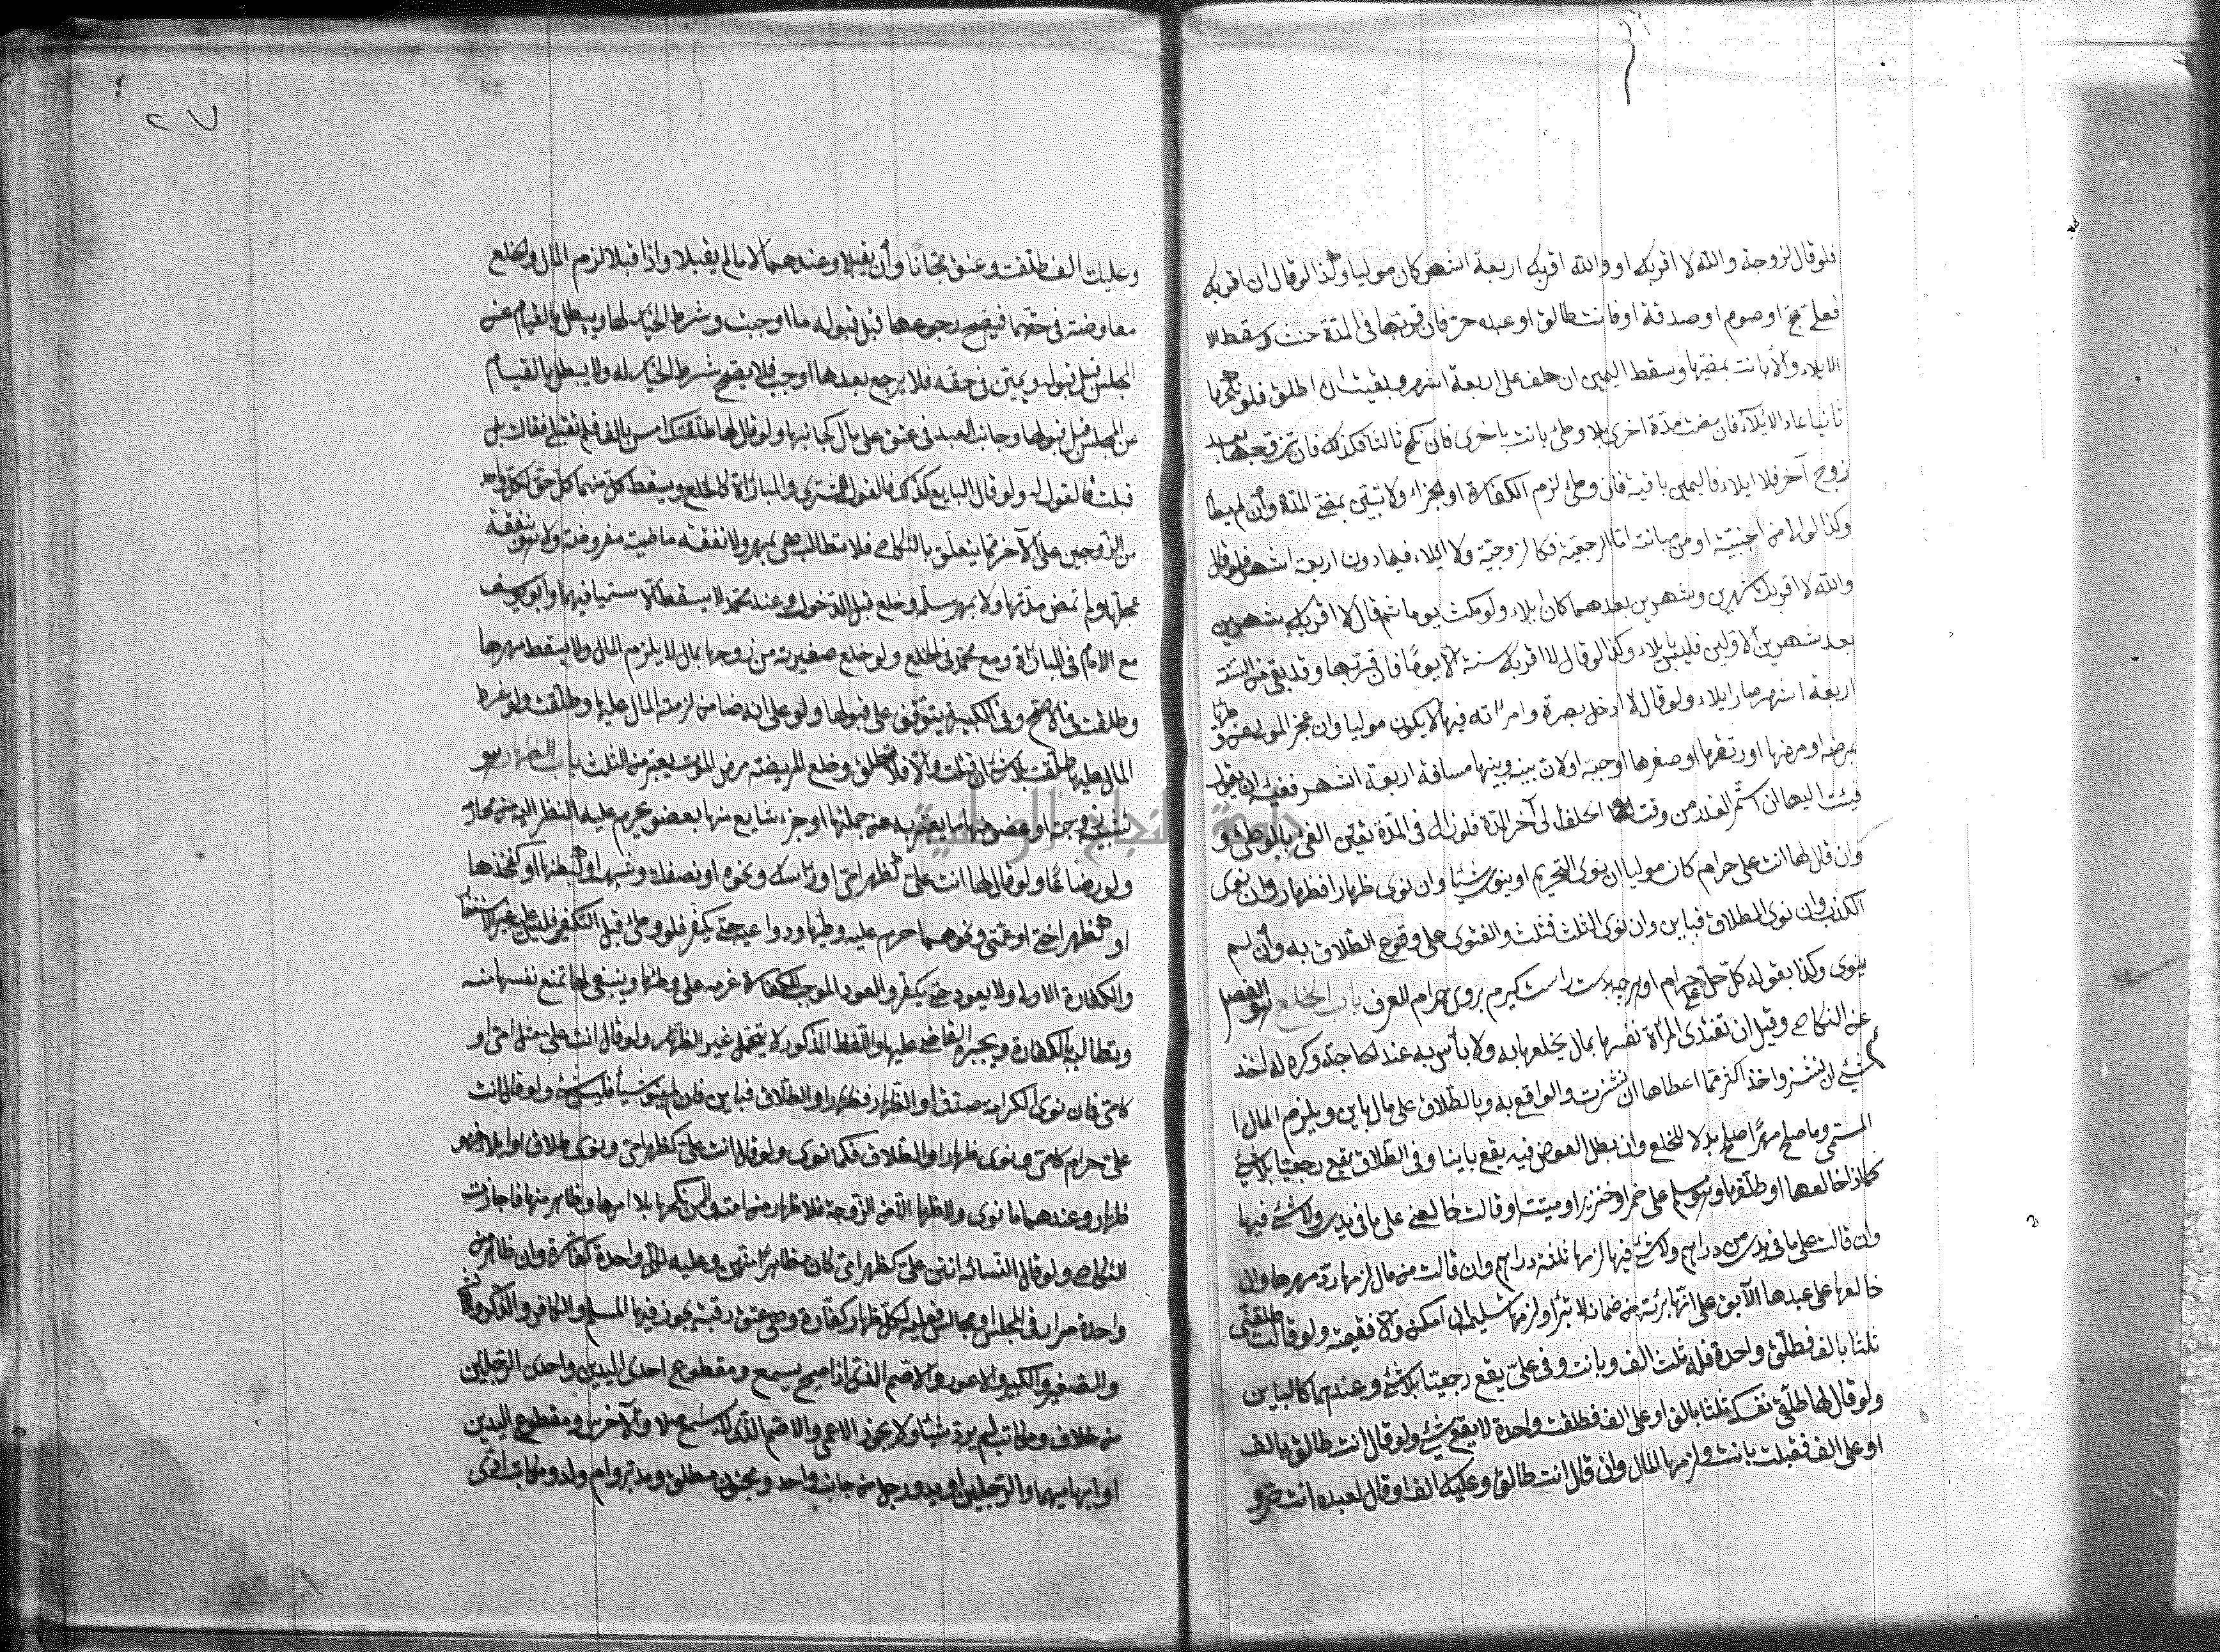 فلو قال لزوجته والله لا اقربك او والله لا اقربك اربعة اشهر كان موليا وكذا لو قال ان اقربك
فعلي حج او صوم او صدقة او فانت طالق او عبده حر فان قربها في المدة حنث وسقط الا
الايلاء والا بانت بمضيها وسقط اليمين ان حلف على اربعة اشهر وبقيت ان اطلق فلو نكحها
ثانيا عاد الايلاء فان مضت مدة اخرى بلا وطئ بانت باخرى فان نكح ثالثا فكذلك فان تزوجها بعد
زوج آخر فلا ايلاء فاليمين باقية فان وطئ لزم الكفارة او الجزاء ولا تبين بمضي المدة وان لم يطأ
وكذا لو آلى من اجنبية او من مبانته اما الرجعية فكالزوجية ولا ايلاء فيما دون اربعة اشهر فلو قال
والله لا اقربك شهرين وشهرين بعدهما كان ايلاء ولو مكث يوما ثم قال لا اقربك شهرين
بعد شهرين الاولين فليس بايلاء وكذا لو قال لا اقربك سنة الا يوما فان قربها وقد بقي من السنة
اربعة اشهر صار ايلاء ولو قال لا ادخل بصرة وامرأته فيها لا يكون موليا وان عجز المولي عن وطئها
بمرضه او مرضها او رتقها او صغرها او جبه او لان بينه وبينها مسافة اربعة اشهر ففيئه ان يقول
فيئت اليها ان استمر العذر من وقت الحلف الى آخر المدة فلو زال في المدة تعين الفئ بالوطئ و
وان قال لها انت علي حرام كان موليا ان نوى التحريم او لم ينو شيئا وان نوى ظهارا فظهار وان نوى
الكذب وان نوى الطلاق فباين وان نوى الثلث فثلث والفتوى على وقوع الطلاق به وان لم
ينوى وكذا بقوله كل حل علي حرام او هرچه بدست راست كيرم بروى حرام للعرف باب الخلع هو الفصل
عن النكاح وقيل ان تفتدى المرأة نفسها بمال يخلعها به ولا بأس به عند الحاجة وكره له اخذ
شئ ان نشز واخذ اكثر مما اعطاها ان نشزت والواقع به وبالطلاق على مال باين ويلزم المال ا
المسمى وما صلح مهرا صلح بدلا للخلع وان بطل العوض فيه يقع باينا وفي الطلاق يقع رجعيا بلا شئ
كما اذا خالعها او طلقها وهو مسلم على خمر او خنزير او ميتة او قالت خالعني على ما في يدى ولا شئ فيها
وان قالت على ما في يدى من دراهم ولا شئ فيها لزمها ثلثة دراهم وان قالت من مال لزمها رد مهرها وان
خالعها على عبدها الآبق على انها بريئة من ضمانه لا تبرأ ولزمها تسليمه ان امكن والا فقيمته ولو قالت طلقني
ثلثا بالف فطلق واحدة فله ثلث الف وبانت وفي على يقع رجعيا بلا شئ وعندهما كالباين
ولو قال لها طلقي نفسك ثلثا بالف او على الف فطلقت واحدة لا يقع شئ ولو قال انت طالق بالف
او على الف فقبلت بانت ولزمها المال وان قال انت طالق وعليك الف او قال لعبده انت حر و
٢٧
وعليك الف طلقت وعتق مجانا وان لم يقبلا وعندهما لا ما لم يقبلا واذا قبلا لزم المال والخلع
معاوضة في حقها فيصح رجوعها قبل قبوله ما اوجبت وشرط الخيار لها ويبطل بالقيام عن
المجلس قبل قبوله ويمين في حقه فلا يرجع بعدها اوجب فلا يصح شرط الخيار له ولا يبطل بالقيام
من المجلس قبل قبولها وجانب العبد في عتق على مال كجانبها ولو قال لها طلقتك امس بالف فلم تقبلي فقالت بل
قبلت فالقول له ولو قال البايع كذلك فالقول للمشترى والمبارأة كالخلع ويسقط كل منهما كل حق لكل واحد
من الزوجين على الآخر مما يتعلق بالنكاح فلا تطالب هي بمهر ولا نفقة ماضية مفروضة ولا هو بنفقة
عجلها ولم تمض مدتها ولا بمهر سلمه وخلع قبل الدخول وعند محمد لا يسقط الا ما سميا فيهما وابو يوسف
مع الامام في المبارأة ومع محمد في الخلع ولو خلع صغيرته من زوجها بمال لا يلزم المال ولا يسقط مهرها
وطلقت في الاصح وفي الكبيرة يتوقف على قبولها ولو على انه ضامن لزمه المال عليها وطلقت ولو شرط
المال عليها طلقت بلا شئ ان قبلت والا فلا تطلق وخلع المريضة مرض الموت يعتبر من الثلث باب الظهار هو
تشبيه زوجته او عضو منها ما يعبر به عن جملتها او جزء شايع منها بعضو يحرم عليه النظر اليه من محارمه
ولو رضاعا ولو قال لها انت علي كظهر امي او رأسك ونحوه او نصفك وشبهه او كبطنها او كفخذها
او كظهر اختي او عمتي ونحوهما حرم عليه وطيها ودواعيه حتى يكفر فلو وطئ قبل التكفير فليس عليه غير الاستغفار
والكفارة الاولى ولا يعود حتى يكفر والعود الموجب للكفارة عزمه على وطئها وينبغى لها تمنع نفسها منه
وتطالب بالكفارة ويجبره القاضي عليها واللفظ المذكور لا يحتمل غير الظهار ولو قال انت علي مثل امي او
كامي فان نوى الكرامة صدق او الظهار فظهار او الطلاق فباين فان لم ينو شيأ فليس بشئ ولو قال انت
علي حرام كامي ونوى ظهارا او الطلاق فكما نوى ولو قال انت علي كظهر امي ونوى طلاق او ايلاء فهو
ظهار وعندهما ما نوى ولا ظهار الا من الزوجة فلا ظهار من امته ولا ممن نكحها بلا امرها وظاهر منها فاجازت
النكاح ولو قال لنسائه انتن علي كظهر امي كان مظاهرا منهن وعليه لكل واحدة كفارة وان ظاهر من
واحدة مرارا في المجلس او مجالس فعليه لكل ظهار كفارة وهي عتق رقبة يجوز فيها المسلم والكافر والذكر والانثى
والصغير والكبير والاعور والاصم الذي اذا صيح يسمع ومقطوع احدى اليدين واحدى الرجلين
من خلاف ومكاتب لم يرد شيئا ولا يجوز الاعمى والاصم الذي لا يسمع اصلا والآخرس ومقطوع اليدين
او ابهاميهما والرجلين او يد ورجل من جانب واحد ومجنون مطلق ومدبر وام ولد ومكاتب ادى
جامعة النجاح الوطنية